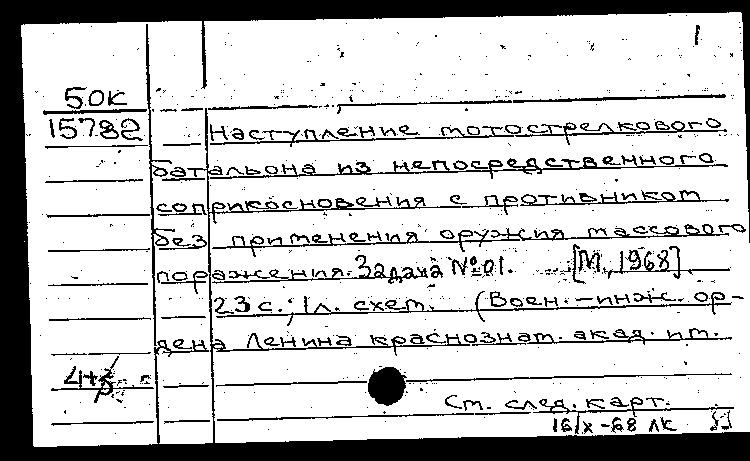 1
50К
15782
Наступление мотострелкового
батальона из непосредственного
соприкосновения с противником
без применения оружия массового
поражения. Задача №01. [М., 1968].
23 с.; 1 л. схем. (Воен.-инж. ор-
дена Ленина краснознам. акад. им.
См. след. карт.
16/X-68 ЛК